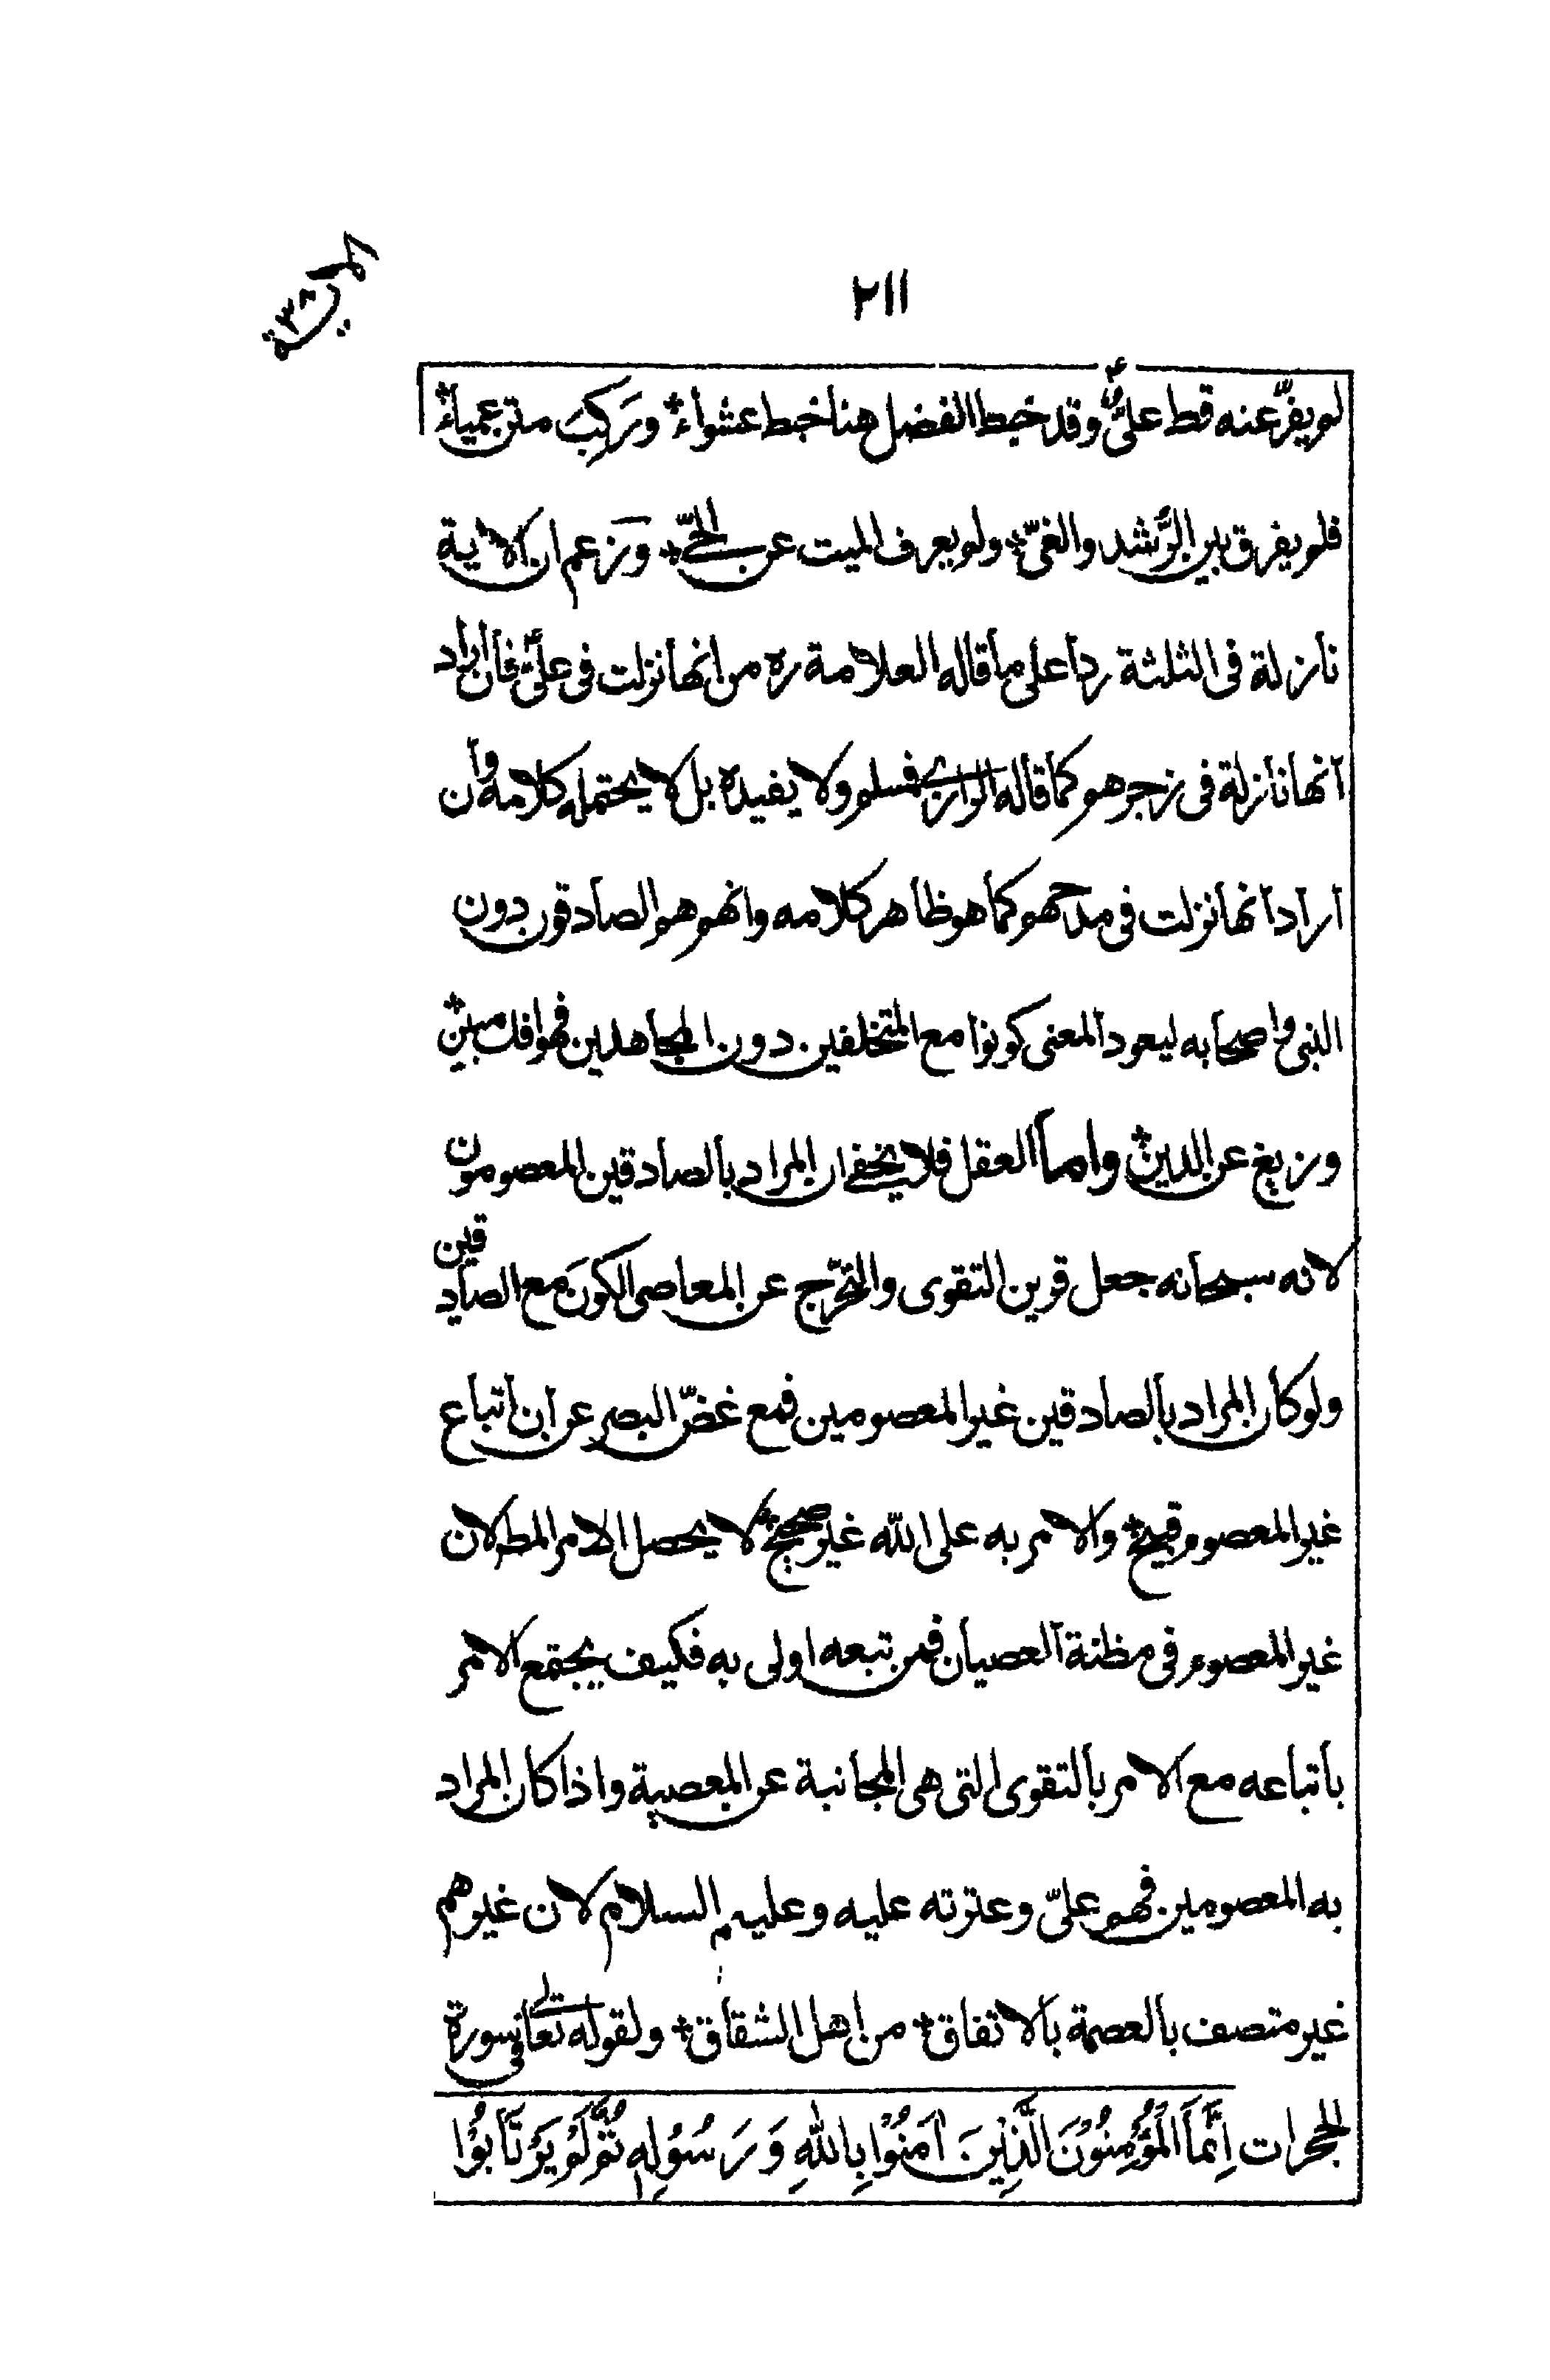 ٢١١
لم يفرّ عنه قط علىّ وقد خبط الفضل هنا خبط عشواء ورَكِبَ متن عمياء
فلم يفرق بين الرُّشد والغىّ ولم يعرف الميت عن الحىّ وزعم ان الاية
نازلة فى الثلثة ردا على ما قاله العلامة ره من انها نزلت فى علىّ فان اراد
انها نازلة فى زجرهم كما قاله الرازى فمسلم ولا يفيده بل لا يحتمله كلامه وان
اراد انها نزلت فى مدحهم كما هو ظاهر كلامه وانهم هم الصادقون دون
النبى واصحابه ليعود المعنى كونوا مع المتخلفين دون المجاهدين فهو افك مبين
وزيغ عن الدين واما العقل فلا يخفى ان المراد بالصادقين المعصومون
لانه سبحانه جعل قرين التقوى والتحرّج عن المعاصى الكونَ مع الصادقين
ولو كان المراد بالصادقين غير المعصومين فمع غضّ البصر عن ان اتباع
غير المعصوم قبيح والامر به على الله غير صحيح لا يحصل الامر المط لان
غير المعصوم فى مظنة العصيان فمن تبعه اولى به فكيف يجتمع الامر
باتباعه مع الامر بالتقوى التى هى المجانبة عن المعصية واذا كان المراد
به المعصومين فهم علىّ وعترته عليه وعليهم السلام لان غيرهم
غير متصف بالعصمة بالاتفاق من اهل الشقاق ولقوله تعالى فى سورة
الحجرات اِنَّمَا الْمُؤْمِنُوْنَ الَّذِيْنَ اٰمَنُوْا بِاللهِ وَرَسُوْلِهٖ ثُمَّ لَمْ يَرْتَابُوْا